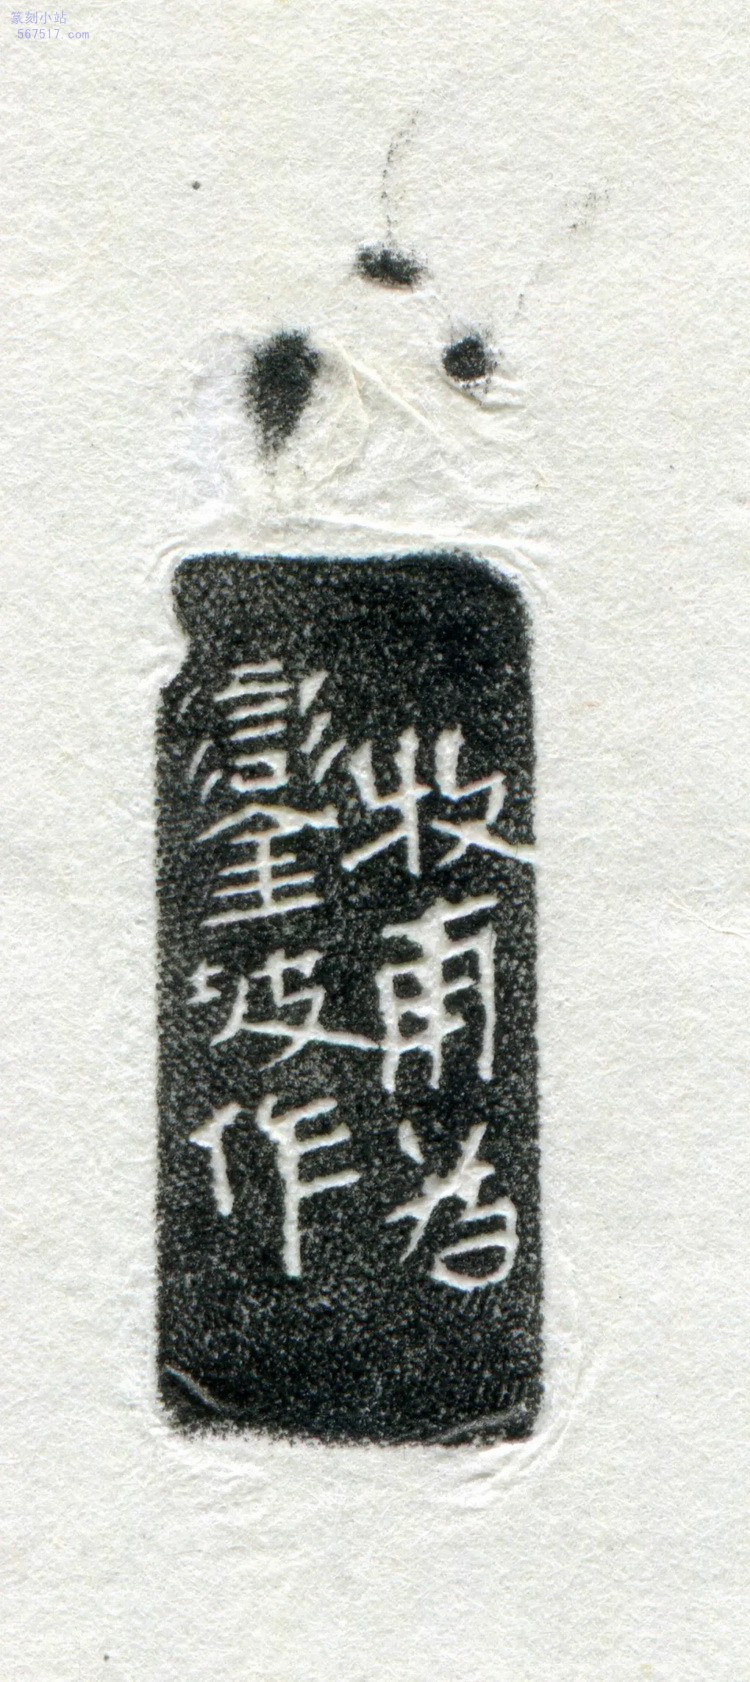 篆刻小站
567517 com
牧甫為
鑾坡作